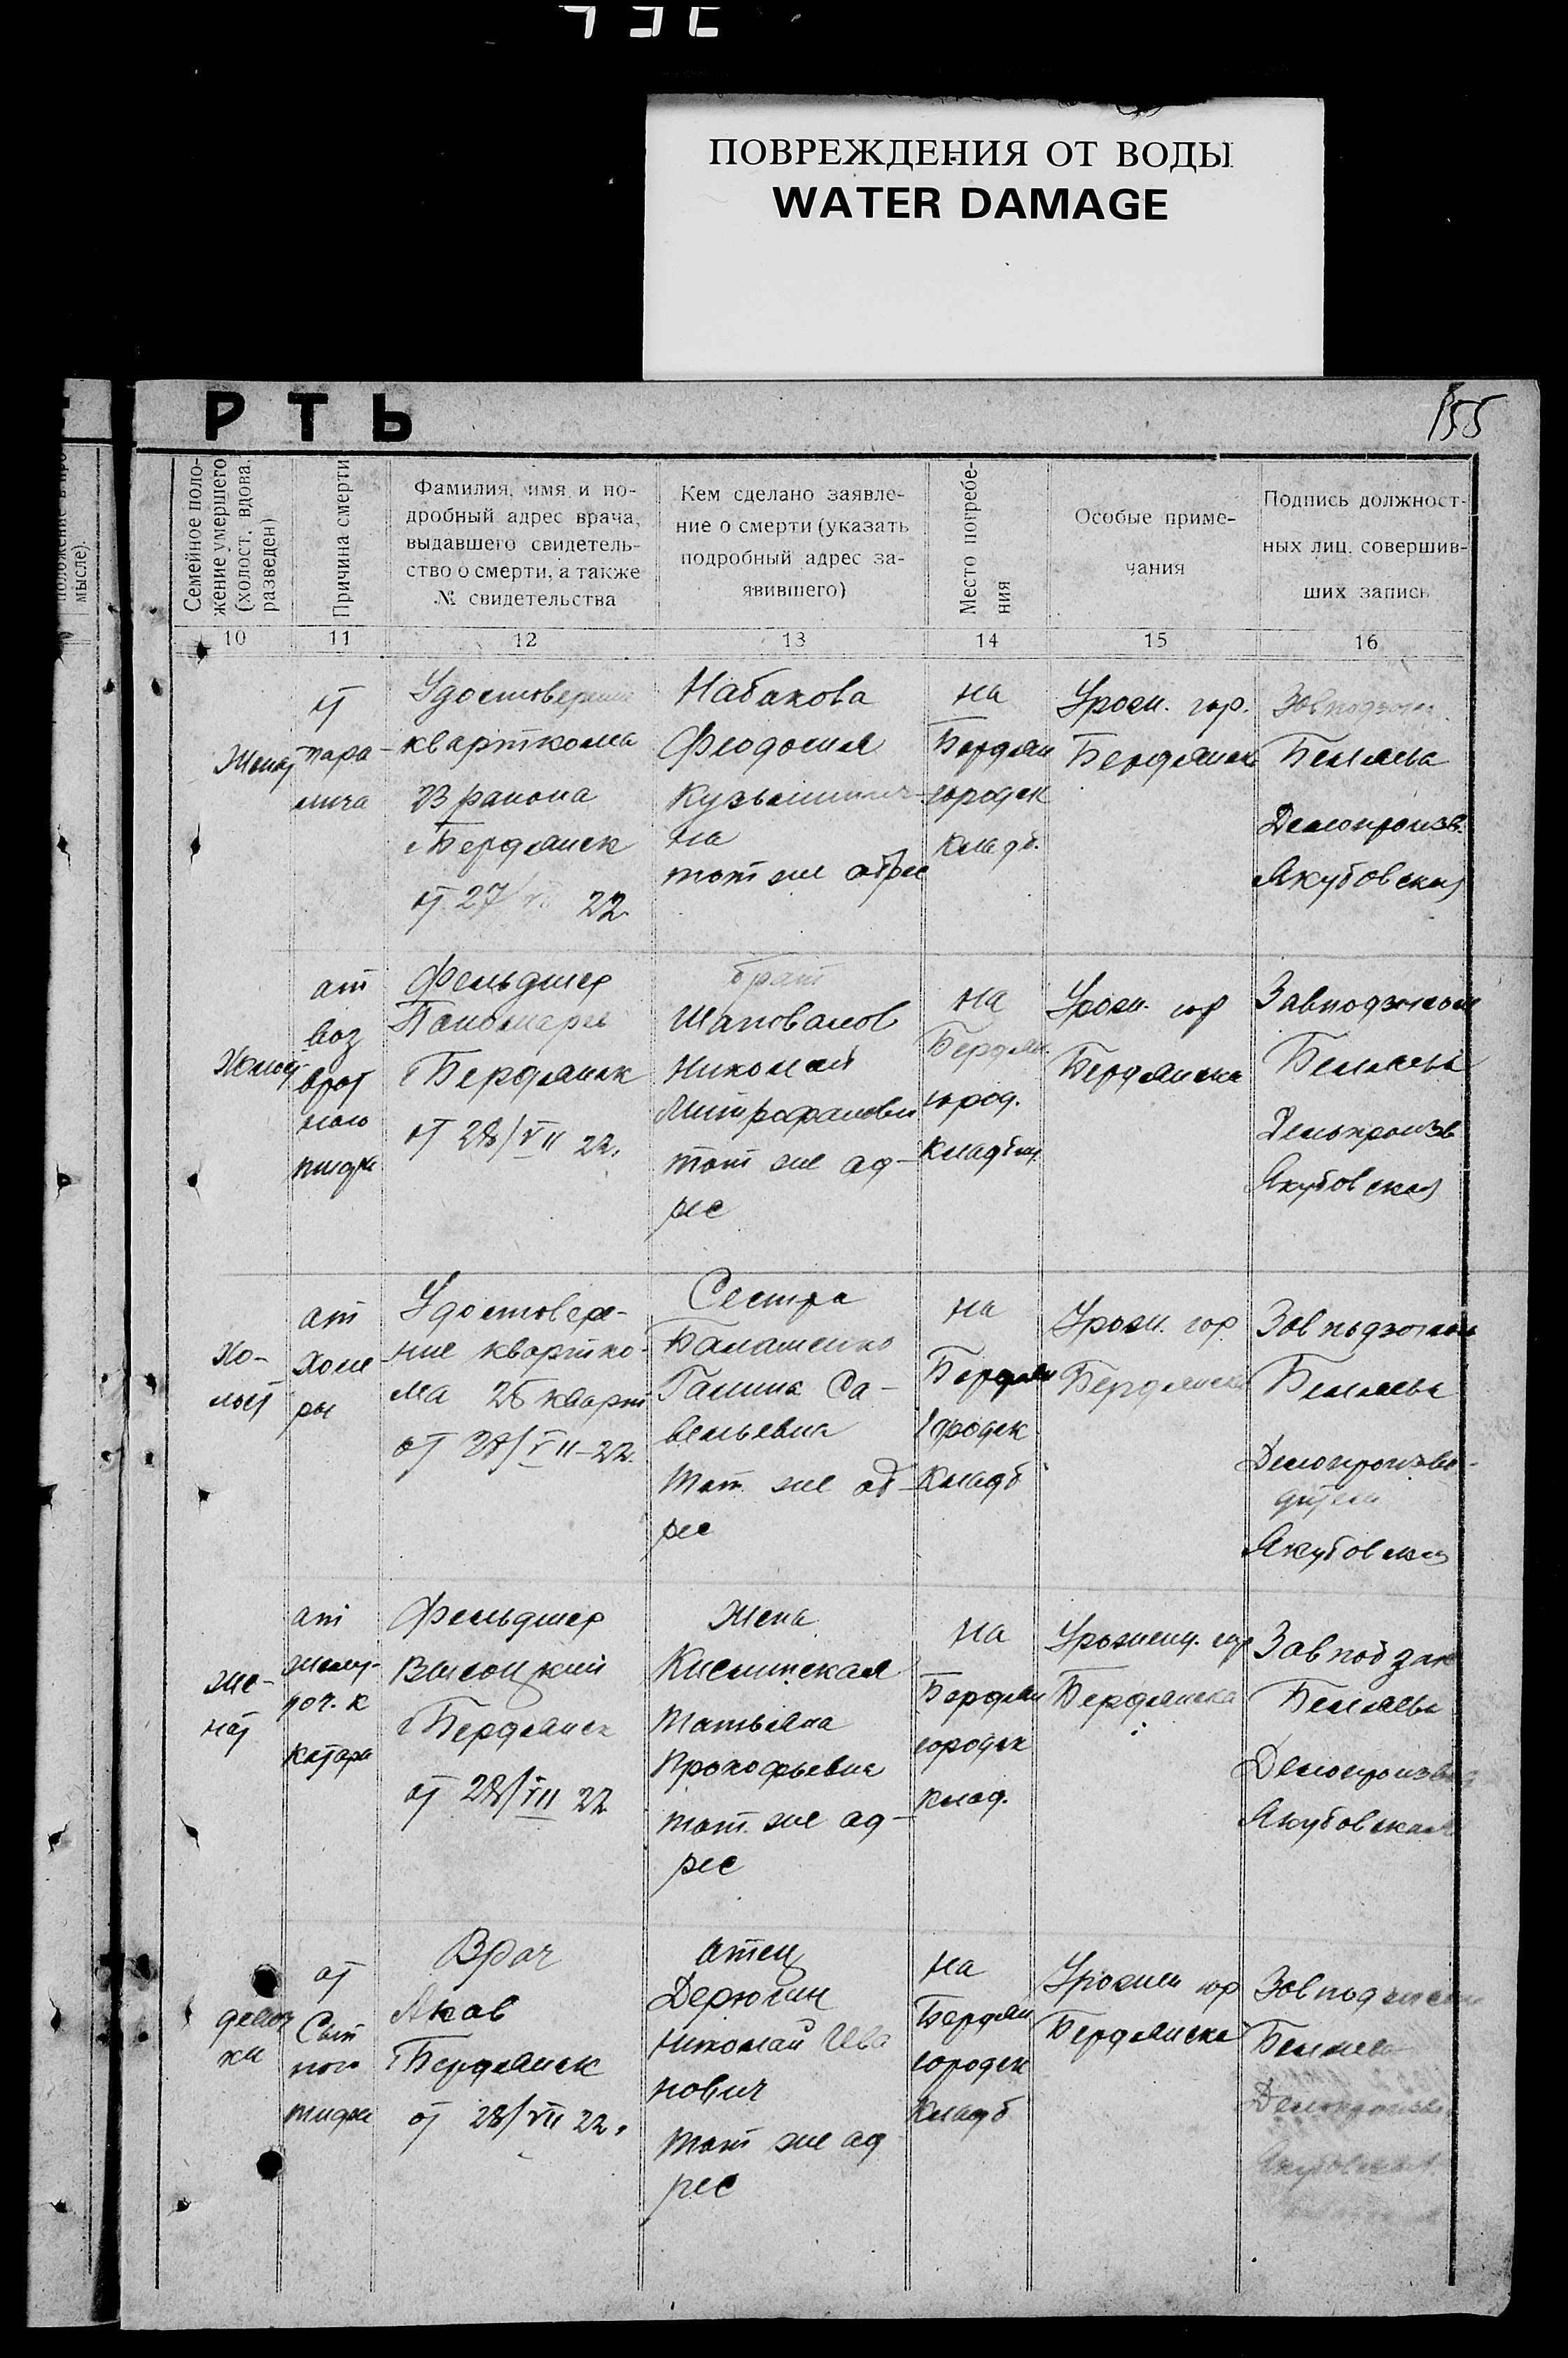 ПОВРЕЖДЕНИЯ ОТ ВОДЫ
WATER DAMAGE
РТЬ
155
положение в про-
мысле).
Семейное поло-
жение умершего
(холост, вдова,
разведен)
Причина смерти
Фамилия, имя и по-
дробный адрес врача,
выдавшего свидетель-
ство о смерти, а также
№ свидетельства
Кем сделано заявле-
ние о смерти (указать
подробный адрес за-
явившего)
Место погребе-
ния
Особые приме-
чания
Подпись должност-
ных лиц, совершив-
ших запись
10
11
12
13
14
15
16
Женат
от
пара-
лича
Удостоверение
кварткома
23 района
Бердянск
от 27/ 22.
Набокова
Феодосия
Кузьминич-
на
тот же адрес
на
Бердян
городск
кладб.
Урож. гор.
Бердянска
Завподзаг.
Беляева
Делопроизв.
Якубовская
от
воз
врат
ного
тифа
Фельдшер
Пономарев
Бердянск
от 28/VII 22.
брат
Шаповалов
Николай
Митрофанови
тот же ад-
рес
на
Бердян.
город.
кладбищ.
Урож. гор
Бердянска
Завподзагсом
Беляева
Делопроизв
Якубовская
Хо-
лост
от
Холе
ры
Удостовере-
ние квартко-
ма 25 кварт
от 28/VII-22.
Сестра
Балашенко
Галина Са-
вельевна
Тот же ад-
рес
на
Бердян
городск
кладб
Урож. гор
Бердянска
Зав подзагсом
Беляева
Делопроизво-
дитель
Якубовская
Же-
нат
от
желу-
доч. к
катара
Фельдшер
Высоцкий
Бердянск
от 28/VII 22
Жена
Татьяна
Прокофьевна
тот же ад-
рес
на
Бердян
городск
клад.
Уроженц. гор
Бердянска
Зав под заг
Беляева
Делопроизвод
Якубовская
от
Сып
ного
тифа
Врач
Яков
Бердянск
от 28/VII 22.
отец
Дерюгин
Николай Ива
нович
тот же ад
рес
на
Бердян
городск
кладб
Урожен гор
Бердянска
Зав подзагсом
Беляева
Делопроизв.
Якубовская